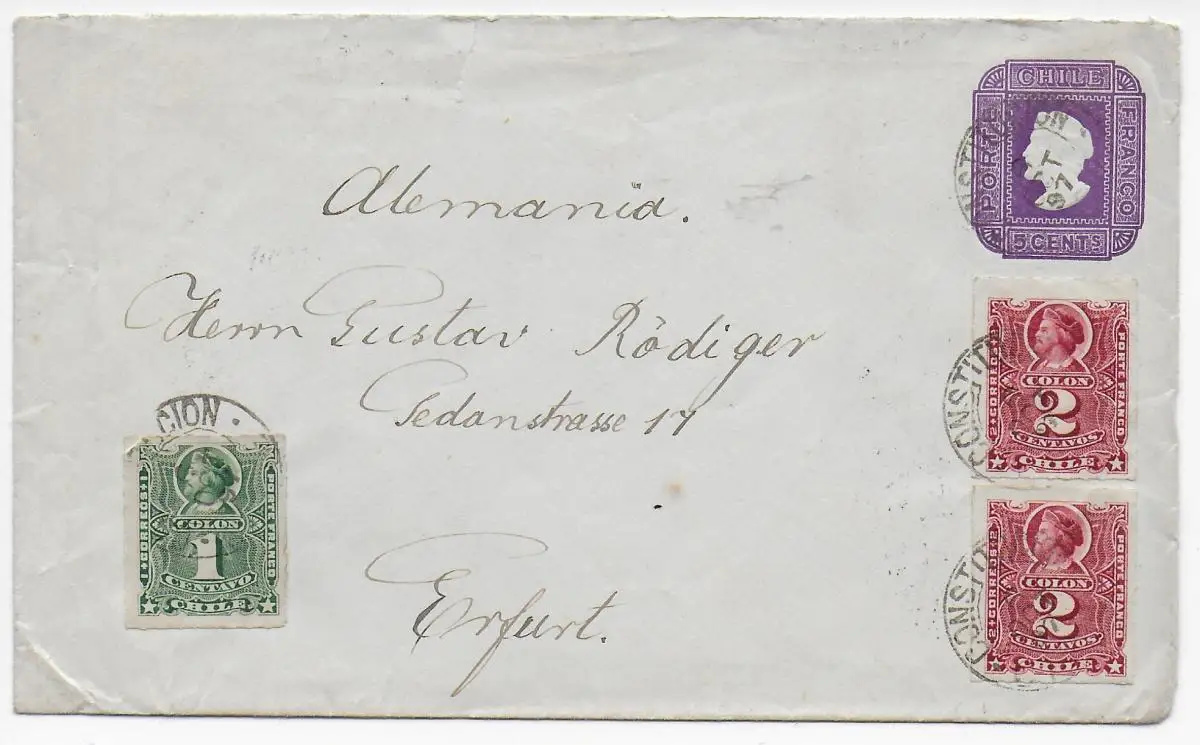 CHILE
PORTE
FRANCO
5 CENTS
CONSTITUCION
97
Alemania.
Herrn Gustav Rödiger
Sedanstrasse 17
Erfurt.
2 CORREOS 2
COLON
PORTE FRANCO
2
CENTAVOS
CHILE
CONSTIT
2 CORREOS 2
COLON
PORTE FRANCO
2
CENTAVOS
CHILE
CONSTIT
CION
1 CORREOS 1
COLON
PORTE FRANCO
1
CENTAVO
CHILE